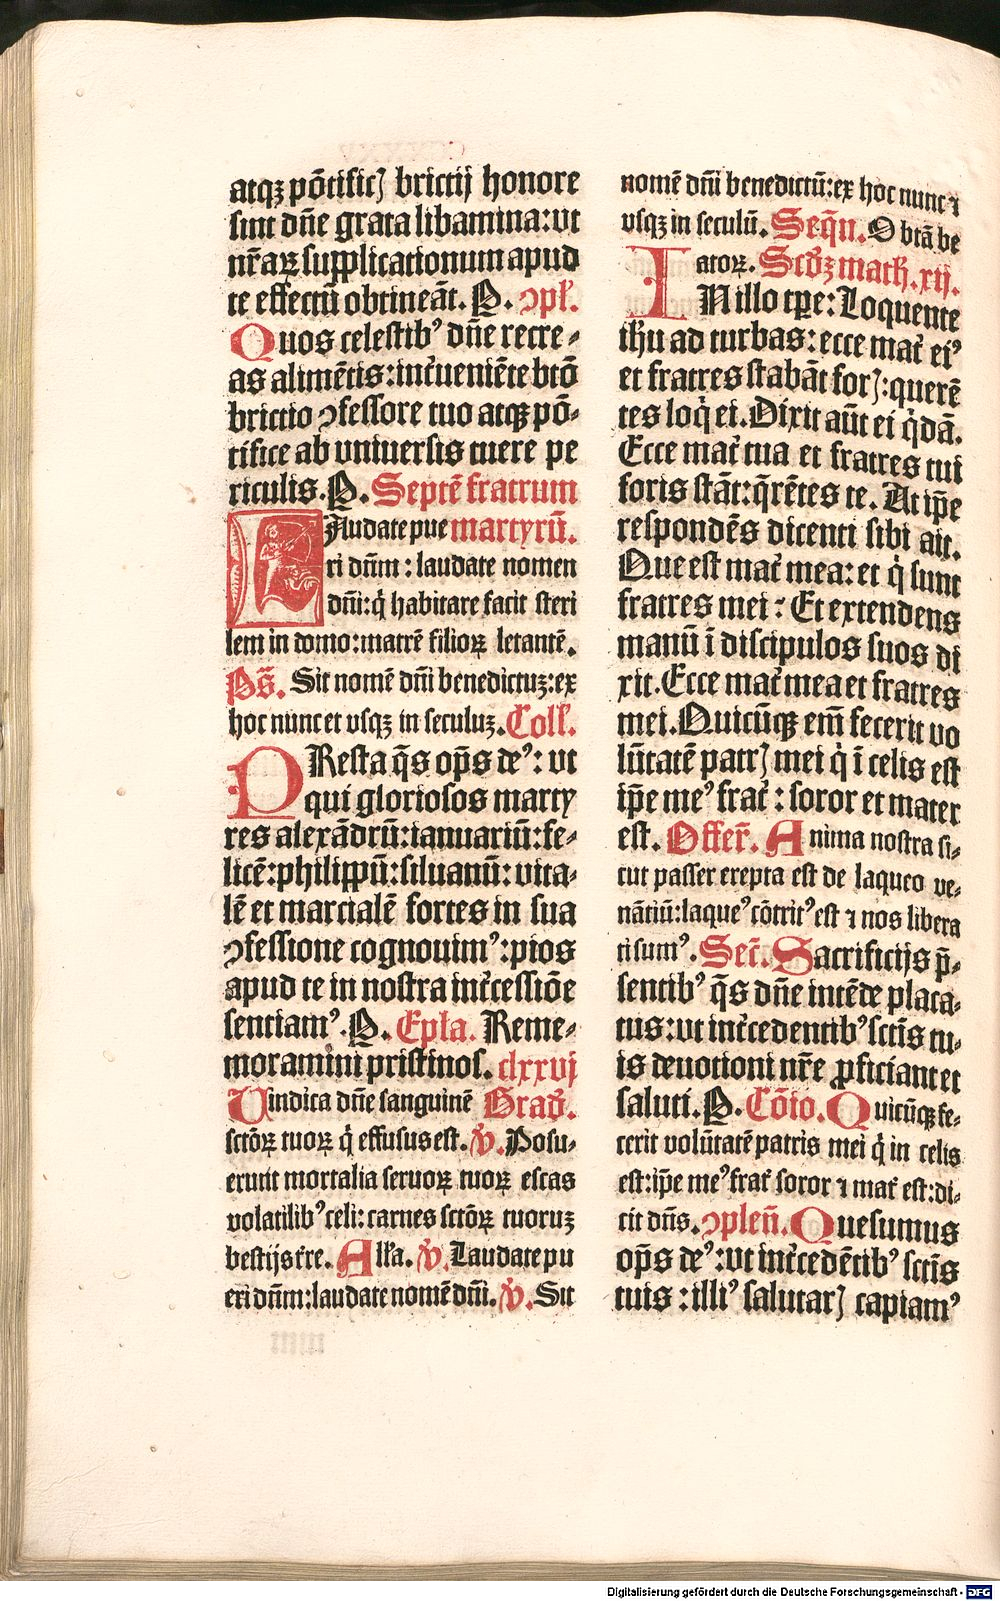 atqꝫ põtificꝭ brictij honore
sint dñe grata libamina: vt
nr̃aꝝ supplicationum apud
te effectũ obtineãt. P. ɔpł.
Quos celestibꝰ dñe recre⸗
as alimẽtis: int̃ueniẽte btõ
brictio ɔfessore tuo atqꝫ põ⸗
tifice ab vniuersis tuere pe
riculis. P. Septẽ fratrum
LAudate pue martyrũ.
ri dñm: laudate nomen
dñi: q̇ habitare facit steri
lem in domo: matrẽ filioꝝ letantẽ.
Ps̃. Sit nomẽ dñi benedictuꝫ: ex
hoc nunc et vsqꝫ in seculuꝫ. Coll̃.
PResta q̃s op̃s deꝰ: vt
qui gloriosos marty
res alexãdrũ: ianuariũ: fe⸗
licẽ: philippũ: siluanũ: vita⸗
lẽ et marcialẽ fortes in sua
ɔfessione cognouimꝰ: pios
apud te in nostra int̃cessiõe
sentiamꝰ. P. Epła. Reme⸗
moramini pristinos. clxxvj
Vindica dñe sanguinẽ Grad̃.
sctõꝝ tuoꝝ q̇ effusus est. v̇. Posu⸗
erunt mortalia seruoꝝ tuoꝝ escas
volatilibꝰ celi: carnes sctõꝝ tuoruꝫ
bestijs tr̃e. Alła. v̇. Laudate pu
eri dñm: laudate nomẽ dñi. v̇. Sit
nomẽ dñi benedictũ: ex hoc nunc ⁊
vsqꝫ in seculũ. Seq̃n. O btã be
atoꝝ. Scd̃ꝫ math̃. xij.
IN illo tꝑe: Loquente
ihũ ad turbas: ecce mat̃ eiꝰ
et fratres stabãt forꝭ: querẽ
tes loq̇ ei. Dixit aũt ei q̇dã.
Ecce mat̃ tua et fratres tui
foris stãt: q̃rẽtes te. At ip̃e
respondẽs dicenti sibi ait.
Que est mat̃ mea: et q̇ sunt
fratres mei? Et extendens
manũ ĩ discipulos suos di
xit. Ecce mat̃ mea et fratres
mei. Quicũqꝫ em̃ fecerit vo
lũtatẽ patrꝭ mei q̇ ĩ celis est
ip̃e meꝰ frat̃: soror et mater
est. Offer̃. Anima nostra si⸗
cut passer erepta est de laqueo ve⸗
nãtiũ: laqueꝰ cõtritꝰ est ⁊ nos libera
ti sumꝰ. Secr̃. Sacrificijs p̃⸗
sentibꝰ q̃s dñe intẽde placa⸗
tus: vt int̃cedentibꝰ sctĩs tu⸗
is deuotioni nr̃e ꝓficiant et
saluti. P. Cõio. Quicũqꝫ fe⸗
cerit volũtatẽ patris mei q̇ in celis
est: ip̃e meꝰ frat̃ soror ⁊ mat̃ est: di⸗
cit dñs. ɔpleñ. Quesumus
op̃s deꝰ: vt int̃cedẽtibꝰ sctĩs
tuis: illiꝰ salutarꝭ capiamꝰ
Digitalisierung gefördert durch die Deutsche Forschungsgemeinschaft - DFG